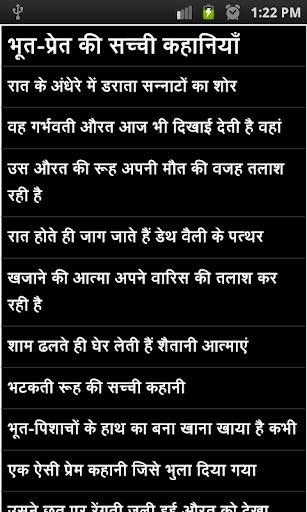 1:22 PM
भूत-प्रेत की सच्ची कहानियाँ
रात के अंधेरे में डराता सन्नाटों का शोर
वह गर्भवती औरत आज भी दिखाई देती है वहां
उस औरत की रूह अपनी मौत की वजह तलाश
रही है
रात होते ही जाग जाते हैं डेथ वैली के पत्थर
खजाने की आत्मा अपने वारिस की तलाश कर
रही है
शाम ढलते ही घेर लेती हैं शैतानी आत्माएं
भटकती रूह की सच्ची कहानी
भूत-पिशाचों के हाथ का बना खाना खाया है कभी
एक ऐसी प्रेम कहानी जिसे भुला दिया गया
उसने छत पर रेंगती जली हुई औरत को देखा